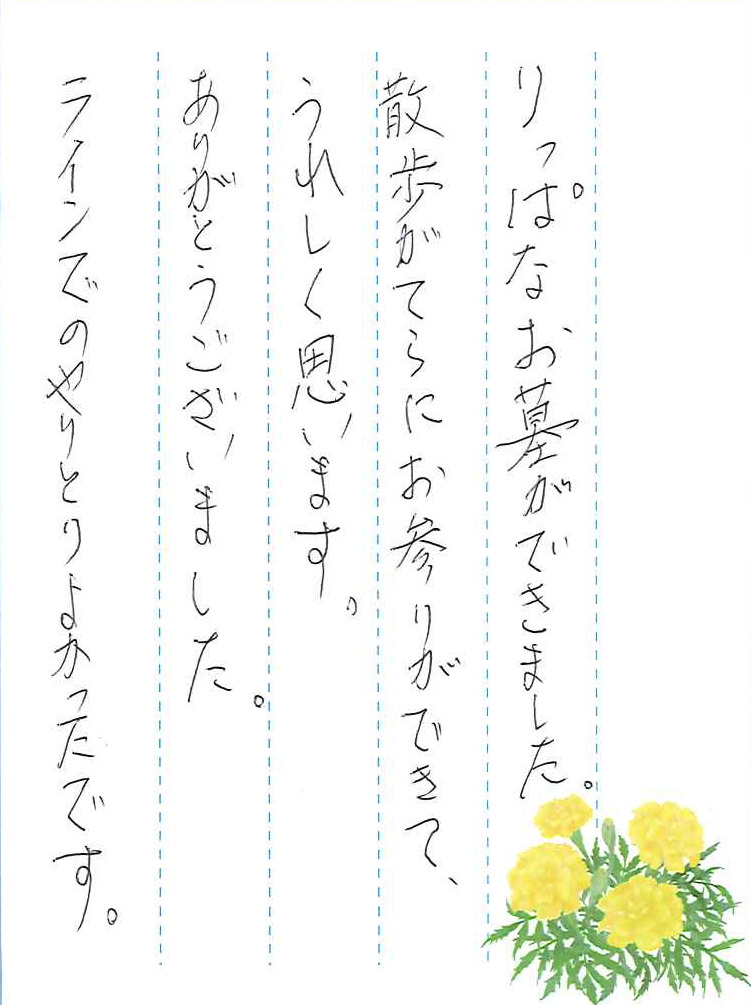 りっぱなお墓ができました。
散歩がてらにお参りができて、
うれしく思います。
ありがとうございました。
ラインでのやりとりよかったです。